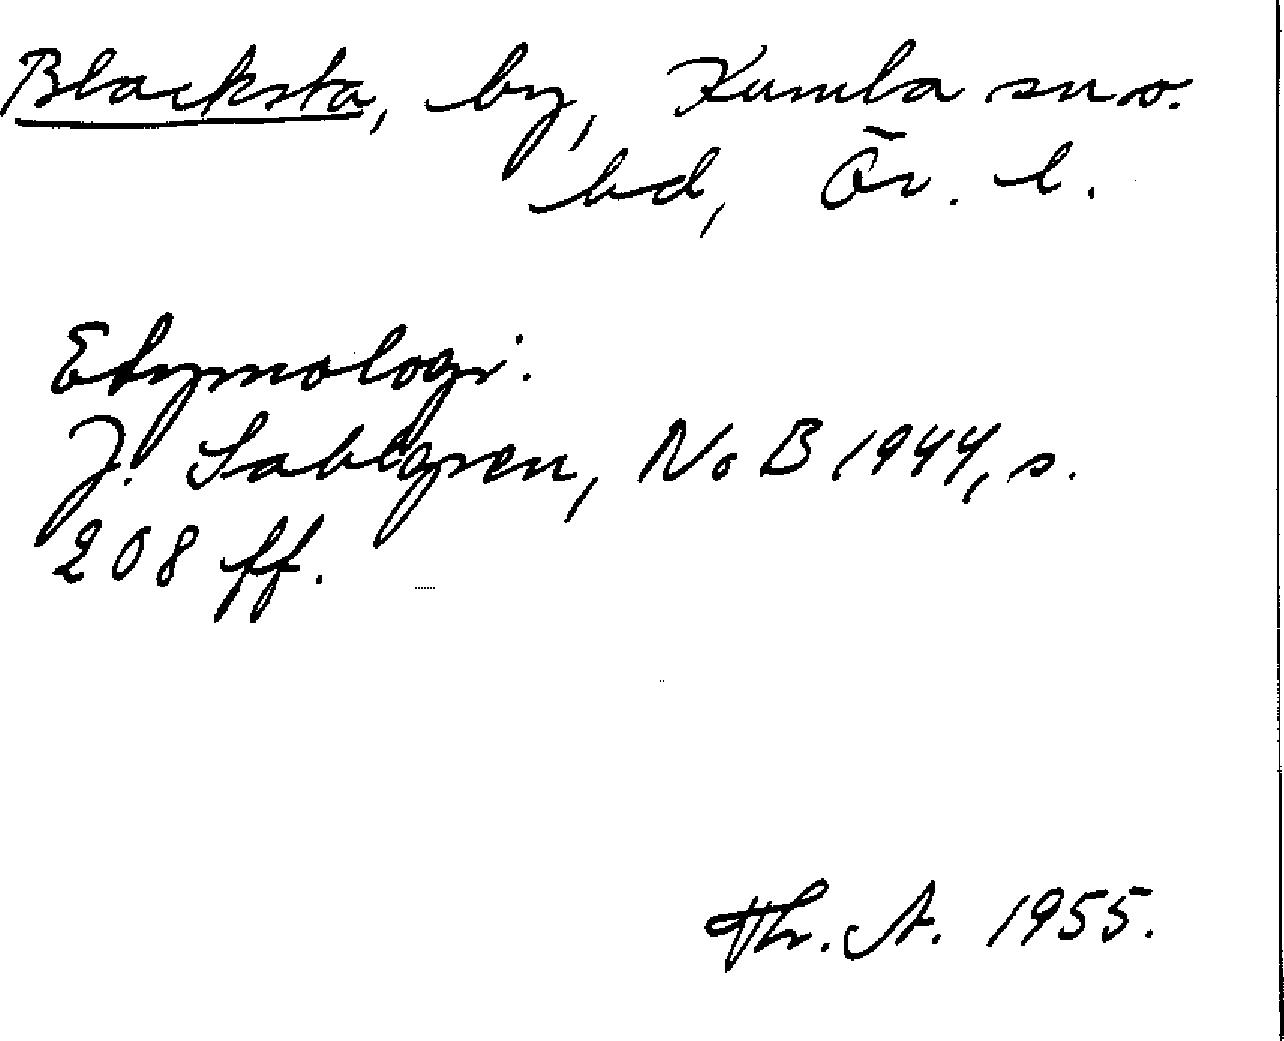 Blacksta, by, Kumla sn o.
hd, Ör. l.
Etymologi:
J. Sahlgren, NoB 1944, s.
208 ff.
Th. A. 1955.